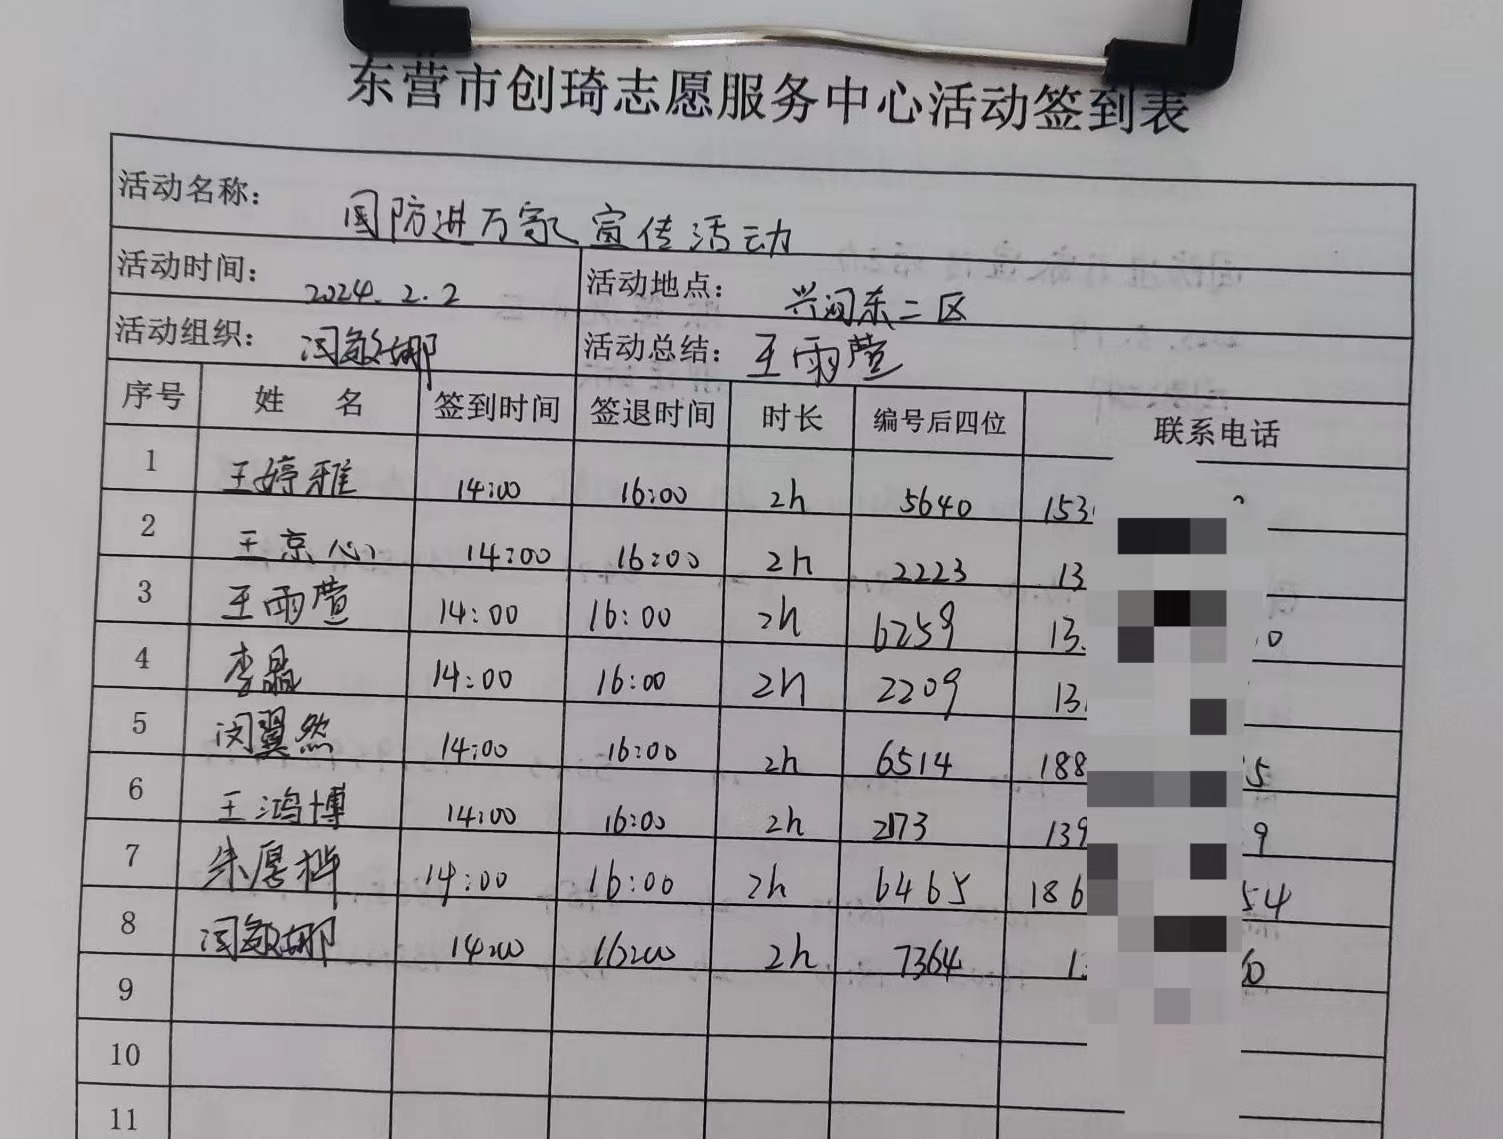 东营市创琦志愿服务中心活动签到表
活动名称： 国防进万家宣传活动
活动时间： 2024.2.2 活动地点： 兴河东二区
活动组织： 闫敏娜 活动总结： 王雨萱
序号 姓 名 签到时间 签退时间 时长 编号后四位 联系电话
1 王婷雅 14:00 16:00 2h 5640 153
2 王京心 14:00 16:00 2h 2223 13
3 王雨萱 14:00 16:00 2h 6259 13 0
4 李晶 14:00 16:00 2h 2209 13
5 闵翼然 14:00 16:00 2h 6514 188 5
6 王鸿博 14:00 16:00 2h 2173 139 9
7 朱厚桦 14:00 16:00 2h 6465 186 54
8 闫敏娜 14:00 16:00 2h 7364 1 60
9
10
11